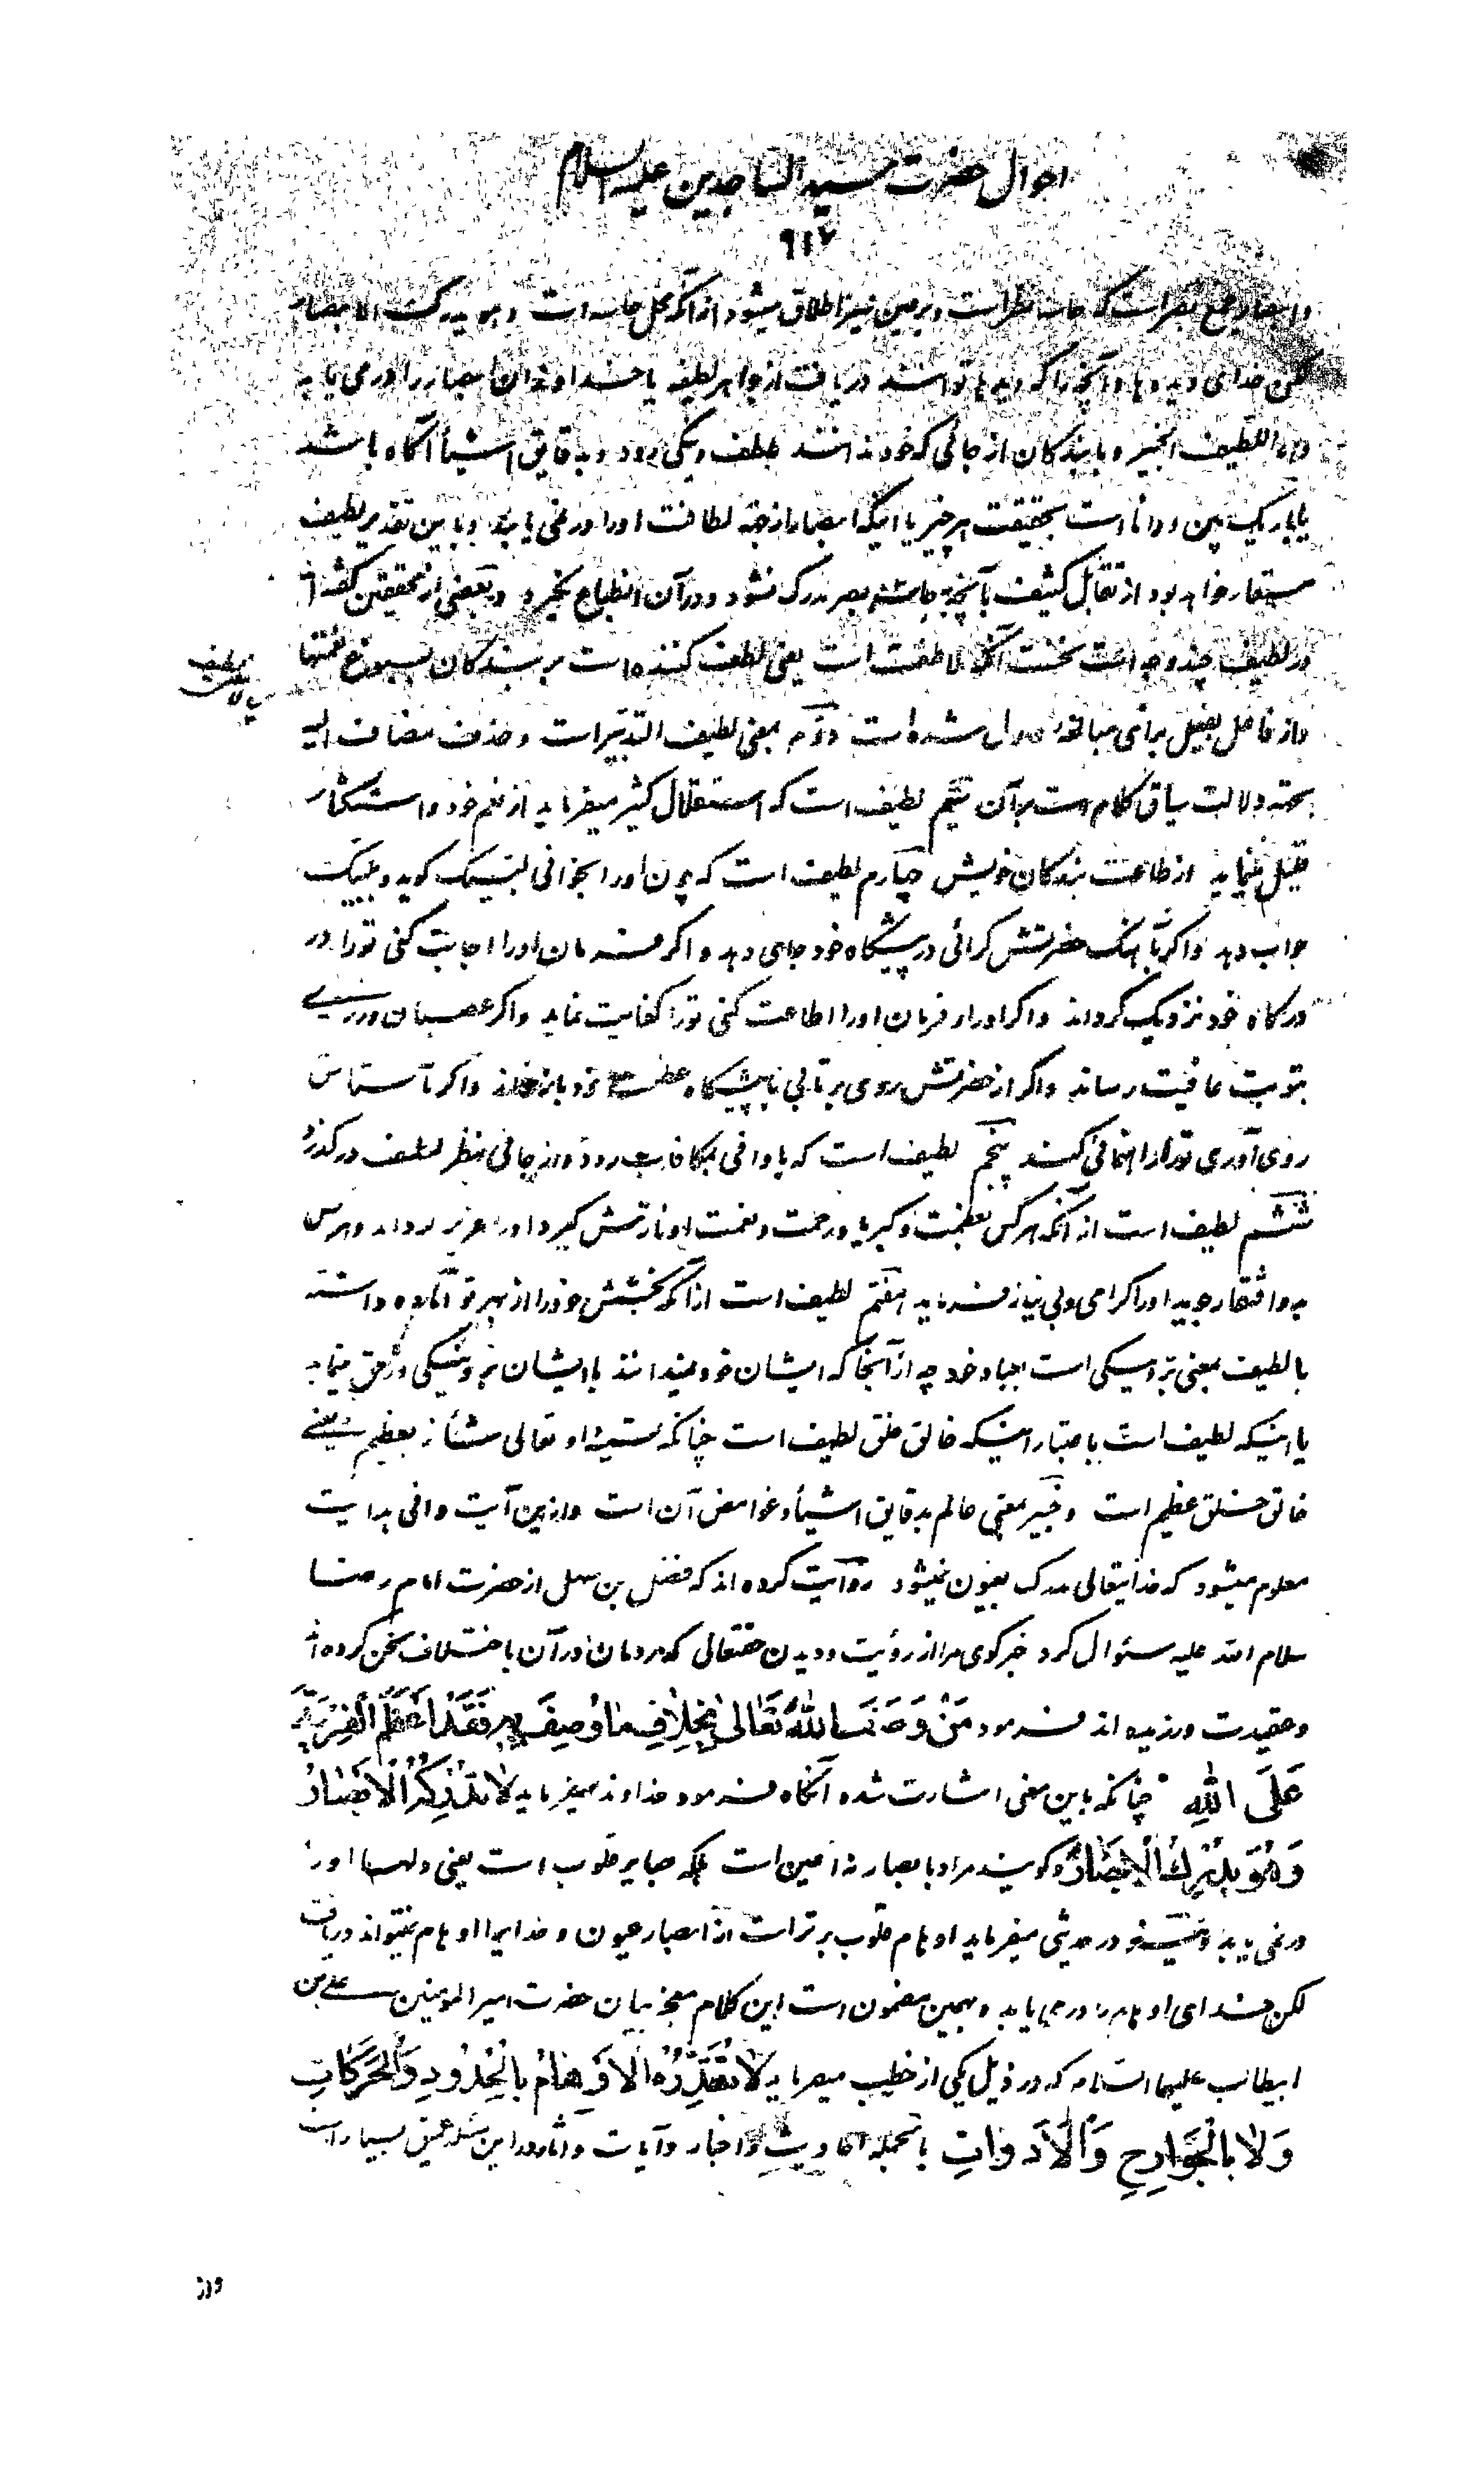 احوال حضرت سید الساجدین علیه السلام
۹۱۷
وابصار جمع بصر است که حاسه نظر است و بر عین نیز اطلاق میشود از آنکه محل حاسه است و هو یدرک الابصار
خدای دیده‌ها و آنچه را که دیدها توانند دریافت از جواهر لطیفه یا خداوندان ابصار را در می یابد
و هو اللطیف الخبیر و با بندگان از جائی که خود ندانند بلطف و نیکی رود و بدقایق اشیأ آگاه باشد
یا باریک بین و دانا است بحقیقت هر چیز یا اینکه ابصار از جهة لطافت او را در نمی یابند و باین تقدیر لطیف
مستعار خواهد بود از مقابل کثیف بآنچه بحاسه بصر مدرک نشود و در آن انطباع نگیرد و بعضی از محققین گفته‌اند
در لطیف چند وجه است نخست آنکه لاطفت است یعنی لطف کننده است بر بندگان بسبوغ نعمتها
و از فاعل بفعیل برای مبالغه عدول شده است دوم بمعنی لطیف التدبیر است و حذف مضاف الیه
بجهة دلالت سیاق کلام است بر آن سیم لطیف است که استقلال کثیر میفرماید از نعم خود و استکثار
قلیل مینماید از طاعت بندگان خویش چهارم لطیف است که چون او را بخوانی لبیک گوید و بلبیک
جواب دهد و اگر بآهنگ حضرتش گرائی در پیشگاه خود جای دهد و اگر فرمان او را اجابت کنی تو را در
درگاه خود نزدیک گرداند و اگر او را و فرمان او را اطاعت کنی تو را کفایت نماید و اگر عصیان ورزیدی
بتوبت عافیت رساند و اگر از حضرتش روی برتابی بپیشگاه عظمت خود باز خواند و اگر بآستانش
روی آوری تو را راهنمائی کند پنجم لطیف است که با وافی بمکافات رود و از جافی بنظر لطف درگذرد
ششم لطیف است از آنکه هرکس بعظمت و کبریا و رحمت و نعمت او نازش گیرد او را عزیز گرداند و هرکس
بدو افتقار جوید او را گرامی و بی نیاز فرماید هفتم لطیف است از آنکه بخشش خود را از بهر تو آماده داشته
یا لطیف بمعنی بر و نیکی است بعباد خود چه از آنجا که ایشان خود نمیدانند با ایشان بر و نیکی و رفق مینماید
یا اینکه لطیف است باعتبار اینکه خالق خلق لطیف است چنانکه تسمیه او تعالی شأنه بعظیم یعنی
خالق خلق عظیم است و خبیر بمعنی عالم بدقایق اشیأ و غوامض آن است و از این آیت وافی هدایت
معلوم میشود که خدایتعالی مدرک بعیون نمیشود روایت کرده‌اند که فضل بن سهل از حضرت امام رضا
سلام الله علیه سئوال کرد خبر گوی مرا از رؤیت و دیدن حقتعالی که مردمان در آن باختلاف سخن کرده‌اند
و عقیدت ورزیده اند فرمود مَنْ وَصَفَ اللّٰهَ تَعَالٰی بِخِلَافِ مٰا وُصِفَ بِهِ فَقَدْ اَعْظَمَ الْفِرْیَةَ
عَلَی اللّٰهِ چنانکه باین معنی اشارت شده آنگاه فرمود خداوند میفرماید لٰا تُدْرِکُهُ الْاَبْصٰارُ
وَهُوَ یُدْرِکُ الْاَبْصٰارَ و گویند مراد بابصار نه اعین است بلکه بصایر قلوب است یعنی دلها او را
در نمی یابند و نیز در حدیثی میفرماید اوهام قلوب برتر است از ابصار عیون و خدایرا اوهام نمیتواند دریافت
لکن خدای اوهام را در می یابد و بهمین مضمون است این کلام معجز بیان حضرت امیر المؤمنین علی بن
ابیطالب علیهما السلام که در ذیل یکی از خطب میفرماید لٰا تُقَدِّرُهُ الْاَوْهٰامُ بِالْحُدُودِ وَالْحَرَکٰاتِ
وَلٰا بِالْجَوٰارِحِ وَالْاَدَوٰاتِ بالجمله احادیث و اخبار و آیات و آثار در این مسئله بسیار است
و از